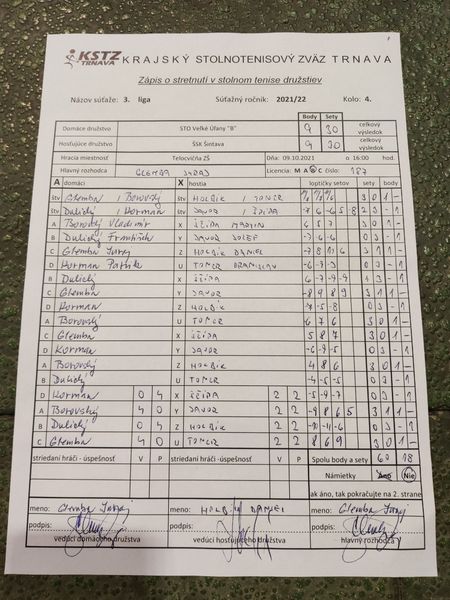 KSTZ TRNAVA KRAJSKÝ STOLNOTENISOVÝ ZVÄZ TRNAVA
Zápis o stretnutí v stolnom tenise družstiev
Názov súťaže: 3. liga Súťažný ročník: 2021/22 Kolo: 4.
Body Sety
Domáce družstvo STO Veľké Úľany "B" 9 30 celkový výsledok
Hosťujúce družstvo ŠSK Šintava 9 30 celkový výsledok
Hracia miestnosť Telocvičňa ZŠ Dňa: 09.10.2021 o 16:00 hod.
Hlavný rozhodca GLEMBA JURAJ Licencia: M A B C číslo: 187
A domáci X hostia loptičky setov sety body
štv Glemba / Borovský štv HOLBIK / TOMCR 3 0 1 -
štv Dulický / Horman štv JAVOR / ŠČIPA -7 -6 -6 5 -8 2 3 - 1
A Borovský Vladimír X ŠČIPA MARTIN 6 5 7 3 0 1 -
B Dulický František Y JAVOR JOZEF -7 -6 -6 0 3 - 1
C Glemba Juraj Z HOLBIK DANIEL
D Horman Patrik U TOMCR BRANISLAV -6 -7 -3 0 3 - 1
B Dulický X ŠČIPA
C Glemba Y JAVOR -8 9 8 9 3 1 1 -
D Horman Z HOLBIK -7 -5 -8 0 3 - 1
A Borovský U TOMCR 6 7 6 3 0 1 -
C Glemba X ŠČIPA 5 8 7 3 0 1 -
D Horman Y JAVOR -6 -9 -5 0 3 - 1
A Borovský Z HOLBIK 4 8 6 3 0 1 -
B Dulický U TOMCR -4 -5 -5 0 3 - 1
D Horman 0 4 X ŠČIPA 2 2 -6 -9 -7 0 3 - 1
A Borovský 4 0 Y JAVOR 2 2 -9 8 6 5 3 1 1 -
B Dulický 0 4 Z HOLBIK 2 2 -10 -11 -6 0 3 - 1
C Glemba 4 0 U TOMCR 2 2 8 6 9 3 0 1 -
striedaní hráči - úspešnosť V P striedaní hráči - úspešnosť V P Spolu body a sety 60 18
Námietky Áno Nie
ak áno, tak pokračujte na 2. strane
meno: Glemba Juraj meno: HOLBIK DANIEL meno: Glemba Juraj
podpis: podpis: podpis:
vedúci domáceho družstva vedúci hosťujúceho družstva hlavný rozhodca